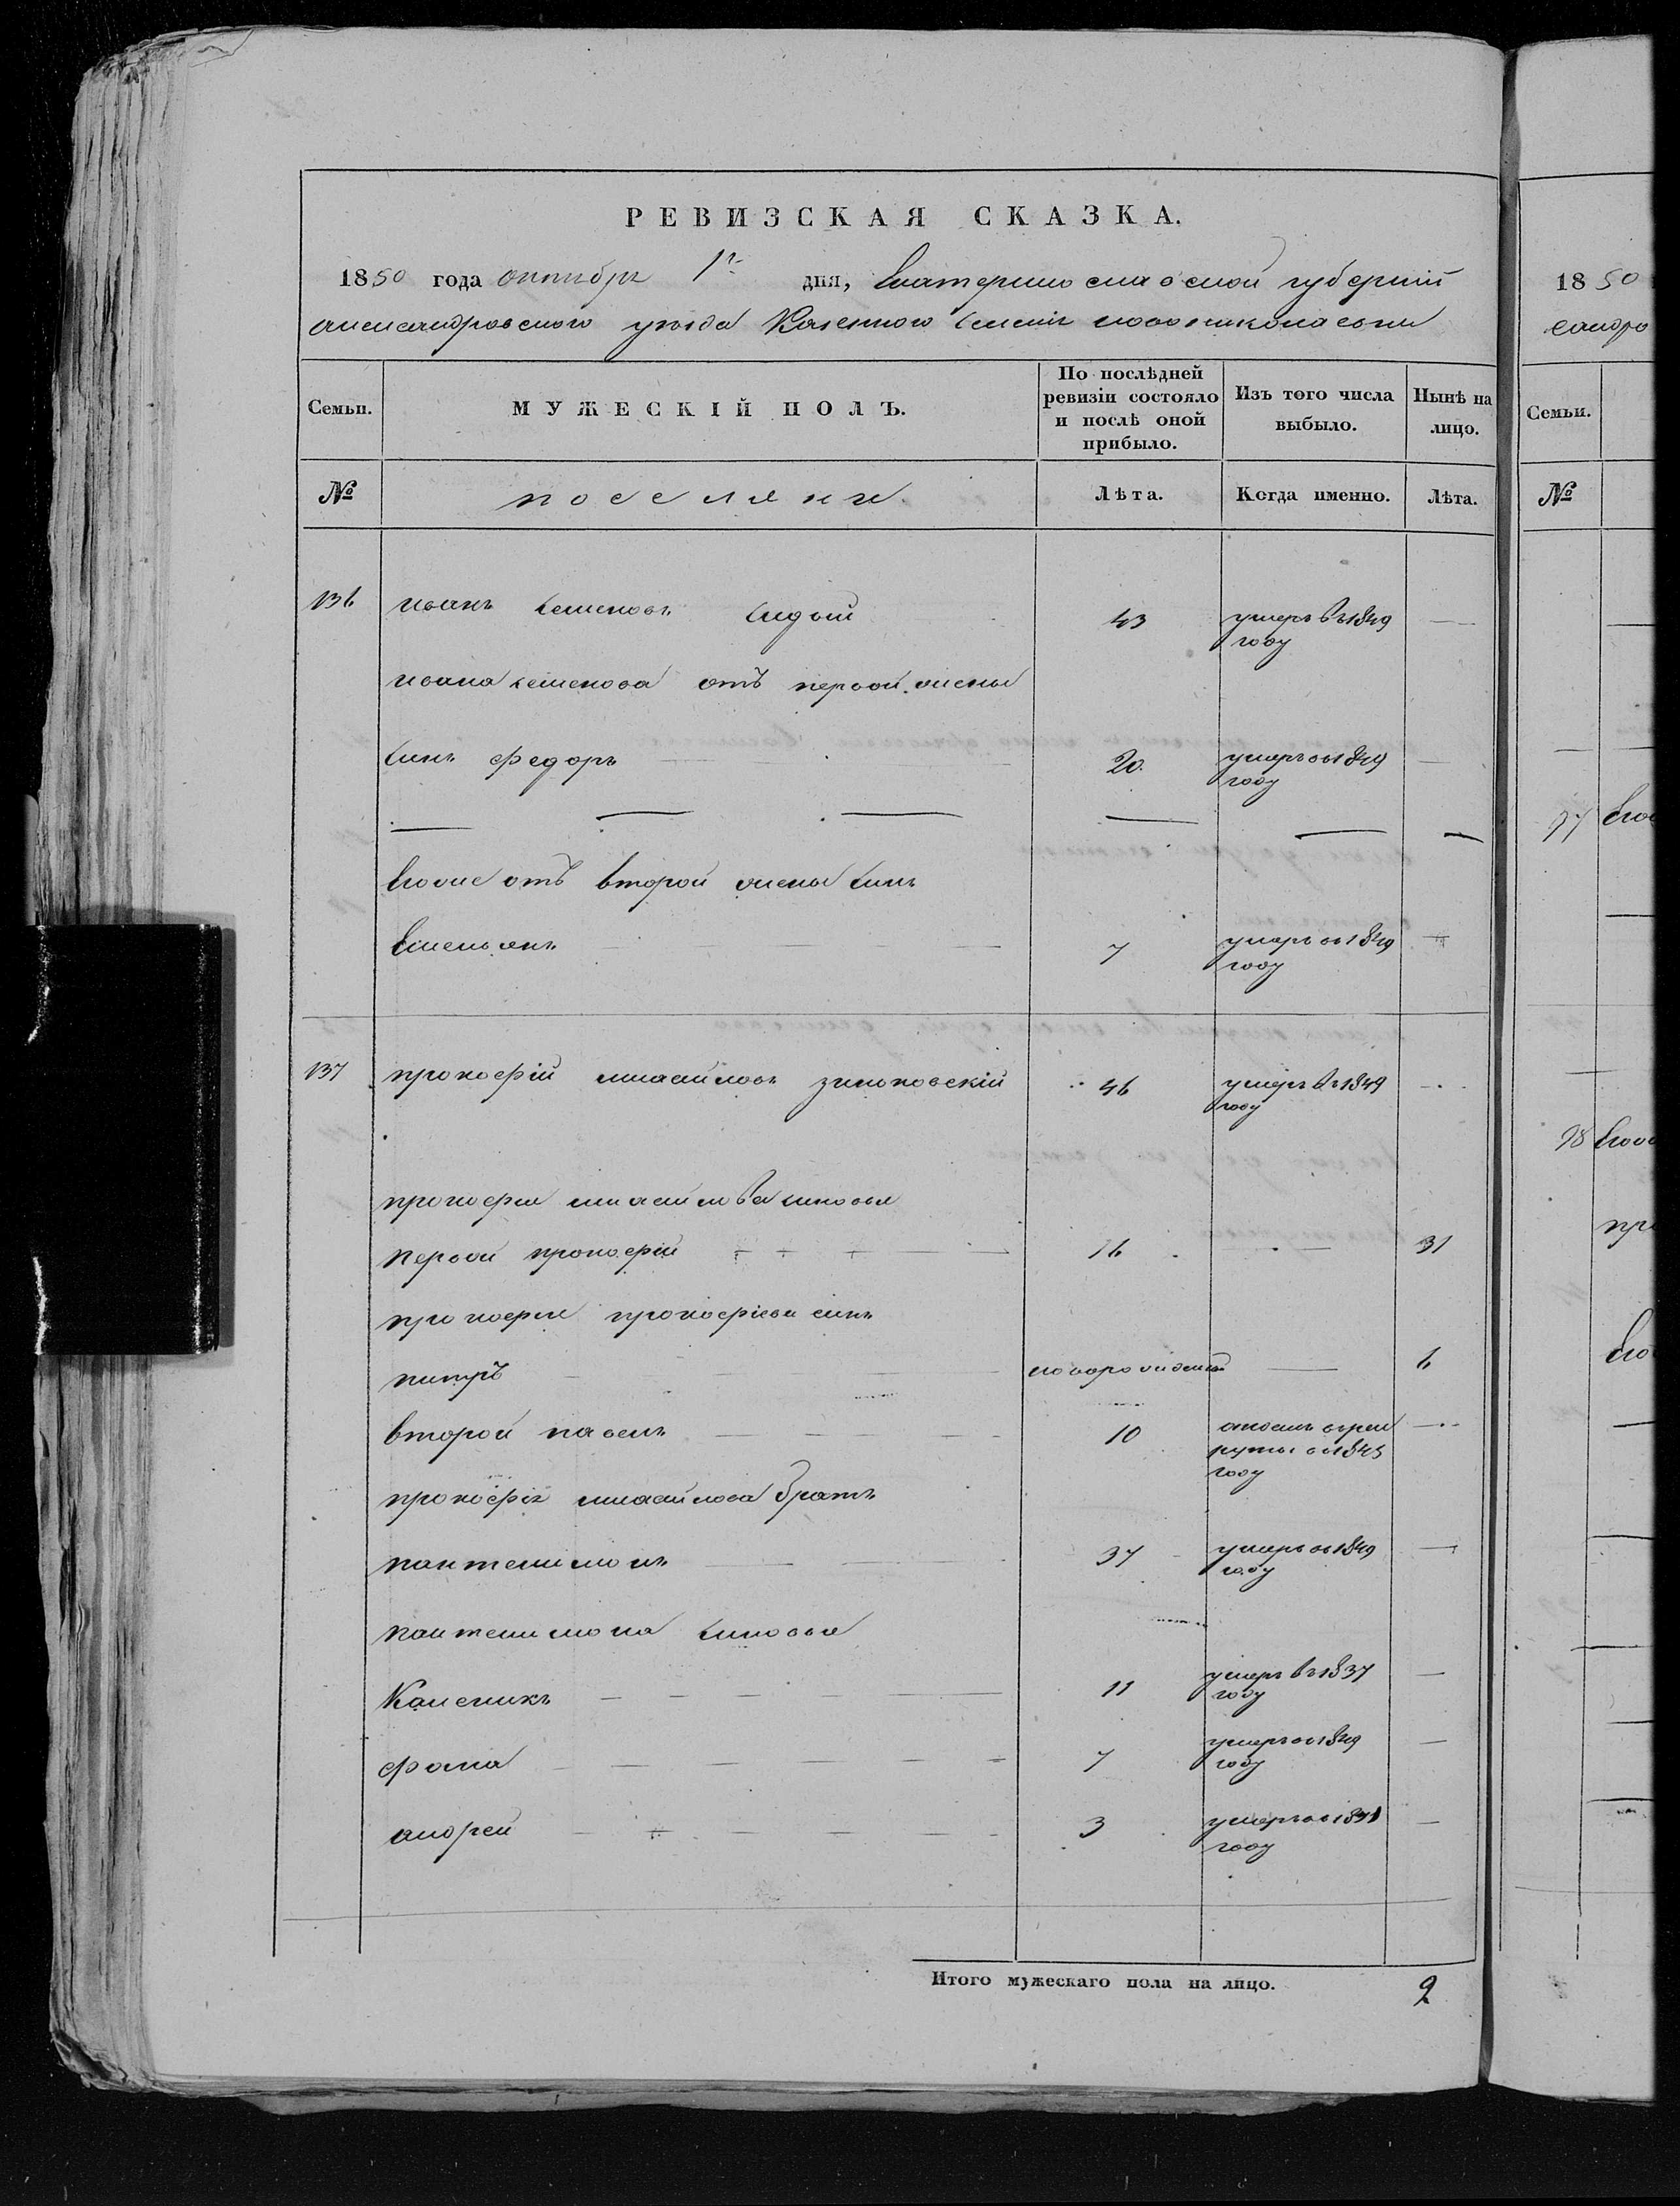 РЕВИЗСКАЯ СКАЗКА.
1850 года октября 1го дня, Екатеринославской губерніи
александровского уезда Казенного селенія новониколаевки
Семьи.
МУЖЕСКІЙ ПОЛЪ.
По послѣдней ревизіи состояло и послѣ оной прибыло.
Изъ того числа выбыло.
Нынѣ на лицо.
№
поселяне
Лѣта.
Когда именно.
Лѣта.
136 иванъ семеновъ седый 43 умеръ въ 1849 году —
ивана семенова отъ первой жены
синъ федоръ — 20 умеръ въ 1849 году —
егоже отъ второй жены синъ
емельянъ — 7 умеръ въ 1849 году
137 прокофій михайловъ зинковскій 46 умеръ въ 1849 году
прокофія михайлова синовья
первой прокофій 16 — 31
прокофія прокофіева синъ
питръ — новорожденъ — 6
второй павелъ — 10 въ 1845 году
прокофія михайлова братъ
пантелимонъ — 37 умеръ въ 1849 году —
пантелимона синовья
Каленикъ — 11 умеръ въ 1837 году —
фома — 7 умеръ въ 1849 году —
андрей — 3 умеръ въ году —
Итого мужескаго пола на лицо. 2
1850
Семьи.
№